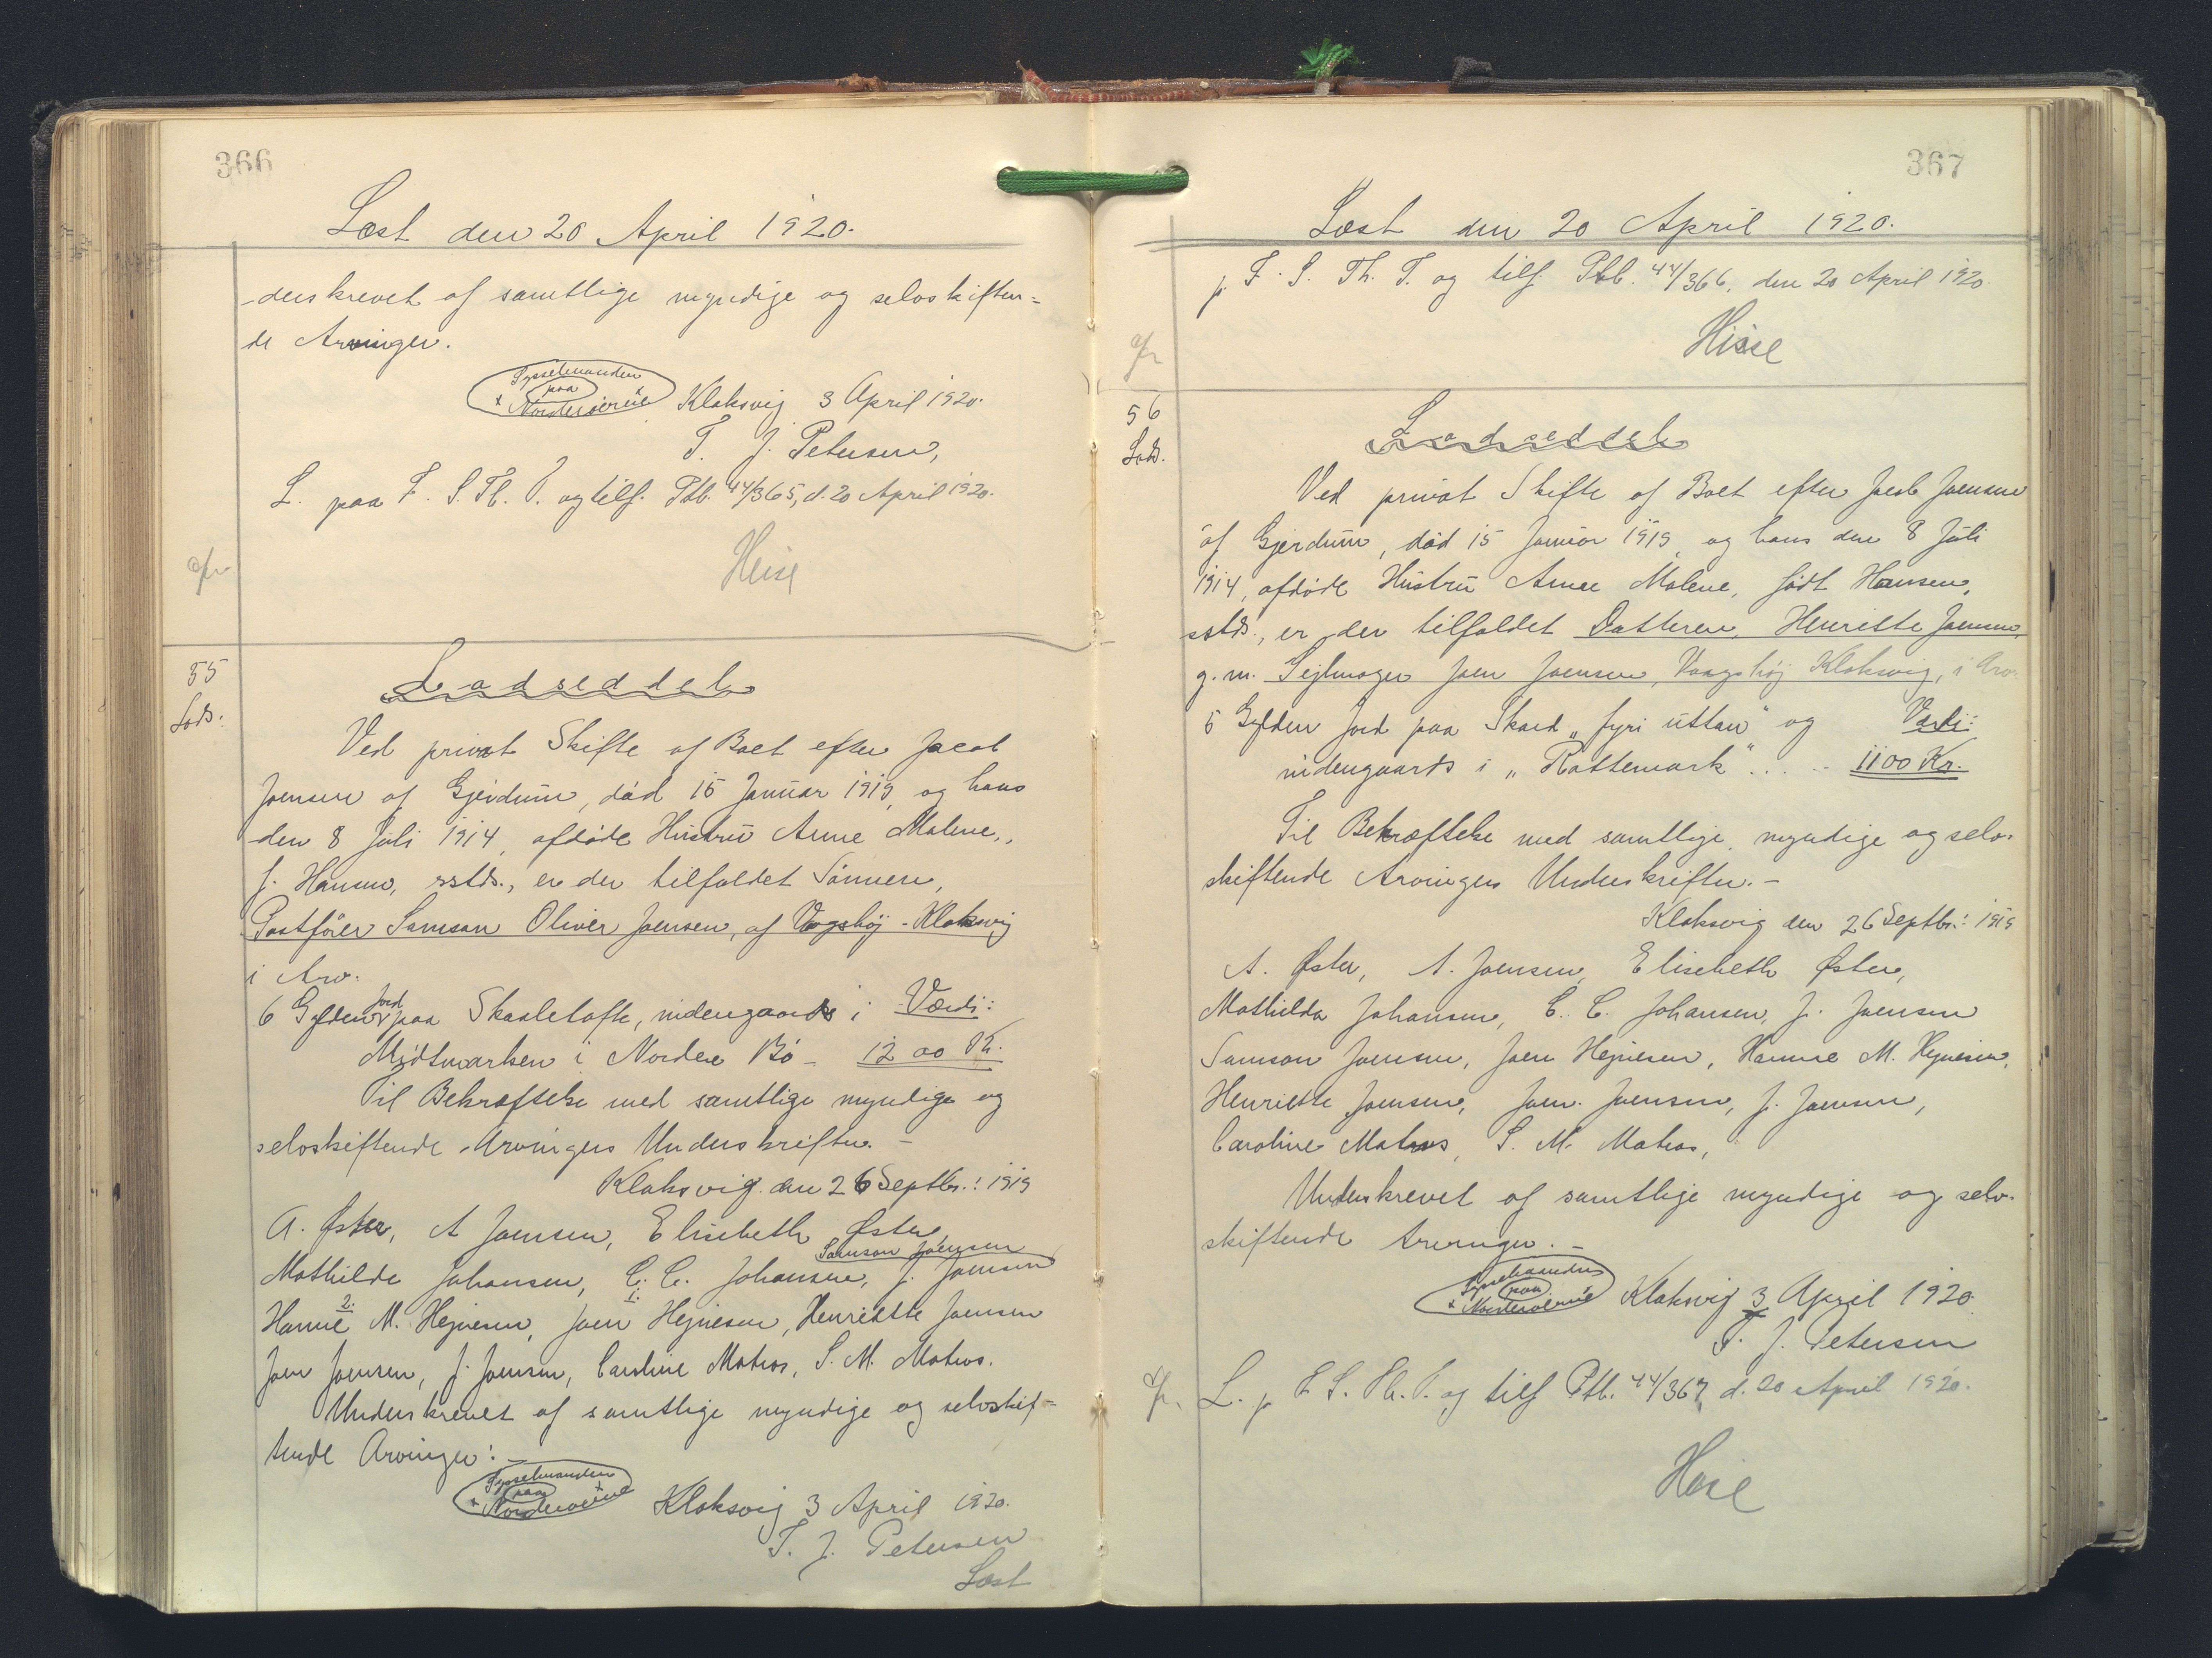 366
Læst den 20 April 1920.
-derskrevet af samtlige myndige og selvskiften=
de Arvinger.
Sysselmanden
paa
x Norderøerne
Klaksvig 3 April 1920.
T. J. Petersen,
L. paa F. S. Th. T. og tilf. Ptb. 44/365, d. 20 April 1920.
Heise
55
Lods.
Lodseddel
Ved privat Skifte af Boet efter Jacob
Joensen af Gjerdum, død 15 Januar 1919, og hans
den 8 Juli 1914, afdøde Hustru Anne Malene,
f. Hansen, sstds., er der tilfaldet Sønnen,
Postfører Samson Oliver Joensen, af Vagshøj - Klaksvig
i Arv.
6 Gylden Jord paa Skaaletofte, indengaards i Værdi:
Midtmarken i Nordere Bø - 1200 Kr.
Til Bekræftelse med samtlige myndige og
selvskiftende Arvingers Underskrifter. -
Klaksvig den 26 Septbr.: 1919
A. Øster, A Joensen, Elisebeth Øster,
Samson Joensen
Mathilde Johansen, C. C. Johansen, J. Joensen
2. 1.
Hanne M. Hejnesen, Joen Hejnesen, Henriette Joensen
Joen Joensen, J. Joensen, Caroline Matras, S. M. Matras.
Underskrevet af samtlige myndige og selvskif=
tende Arvinger: -
Sysselmanden
paa
x Norderøerne x
Klaksvig 3 April 1920.
T. J. Petersen
Læst
367
Læst den 20 April 1920.
p. F. S. Th. T. og tilf. Ptb. 44/366, den 20 April 1920.
Heise
56
Lods.
Lodseddel
Ved privat Skifte af Boet efter Jacob Joensen
af Gjerdum, død 15 Januar 1919, og hans den 8 Juli
1914, afdøde Hustru Anne Malene, født Hansen,
sstds., er der tilfaldet Datteren, Henriette Joensen,
g. m. Sejlmager Joen Joensen, Vaagshøj Klaksvig, i Arv.
5 Gylden Jord paa Skard "fyri uttan" og Værdi:
indengaards i "Rattemark" ... - 1100 Kr.
Til Bekræftelse med samtlige, myndige og selv-
skiftende Arvingers Underskrifter. -
Klaksvig den 26 Septbr.: 1919
A. Øster, A. Joensen, Elisebeth Øster,
Mathilda Johansen, C. C. Johansen, J. Joensen
Samson Joensen, Joen Hejnesen, Hanne M. Hejnesen,
Henriette Joensen, Joen Joensen, J. Joensen,
Caroline Matras, S. M. Matras,
Underskrevet af samtlige myndige og selv-
skiftende Arvinger. -
Sysselmanden
paa
x Norderøerne
Klaksvig 3 April 1920.
T. J. Petersen
L. p F. S. Th. T. og tilf Ptb. 44/367, d. 20 April 1920.
Heise